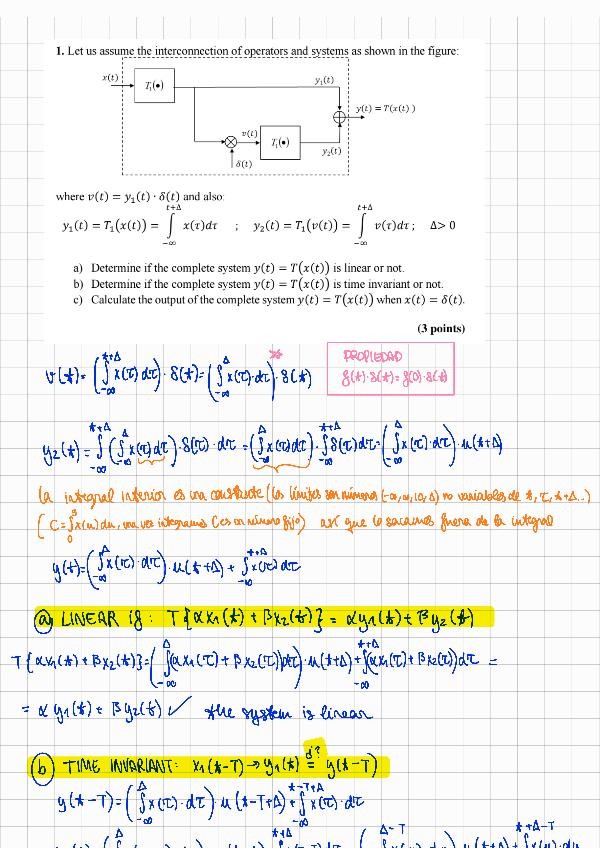 1. Let us assume the interconnection of operators and systems as shown in the figure:
x(t) T₁(•) y₁(t)
y(t) = T(x(t))
v(t) T₁(•) y₂(t)
δ(t)
where v(t) = y₁(t) · δ(t) and also:
y₁(t) = T₁(x(t)) = ∫_{-∞}^{t+Δ} x(τ)dτ ; y₂(t) = T₁(v(t)) = ∫_{-∞}^{t+Δ} v(τ)dτ ; Δ> 0
a) Determine if the complete system y(t) = T(x(t)) is linear or not.
b) Determine if the complete system y(t) = T(x(t)) is time invariant or not.
c) Calculate the output of the complete system y(t) = T(x(t)) when x(t) = δ(t).
(3 points)
v(t) = (∫_{-∞}^{t+Δ} x(τ) dτ) · δ(t) = (∫_{-∞}^{Δ} x(τ)·dτ)* · δ(t)
PROPIEDAD
f(t)·δ(t) = f(0)·δ(t)
y₂(t) = ∫_{-∞}^{t+Δ} (∫_{-∞}^{Δ} x(τ) dτ) · δ(τ) · dτ = (∫_{-∞}^{Δ} x(τ) dτ) · ∫_{-∞}^{t+Δ} δ(τ) dτ = (∫_{-∞}^{Δ} x(τ)·dτ) · u(t+Δ)
la integral interior es una constante (los límites son números (-∞, ∞, 10, Δ) no variables de t, τ, t+Δ...)
(C = ∫_{0}^{3} x(u) du, una vez integramos C es un número fijo) así que lo sacamos fuera de la integral
y(t) = (∫_{-∞}^{Δ} x(τ)·dτ) · u(t+Δ) + ∫_{-∞}^{t+Δ} x(τ) dτ
(a) LINEAR if: T{αx₁(t) + βx₂(t)} = αy₁(t) + βy₂(t)
T{αx₁(t) + βx₂(t)} = (∫_{-∞}^{Δ} (αx₁(τ) + βx₂(τ)) dτ) · u(t+Δ) + ∫_{-∞}^{t+Δ} (αx₁(τ) + βx₂(τ)) dτ =
= αy₁(t) + βy₂(t) ✓ the system is linear
(b) TIME INVARIANT: x₁(t-T) → y₁(t) =¿? y(t-T)
y(t-T) = (∫_{-∞}^{Δ} x(τ)·dτ) · u(t-T+Δ) + ∫_{-∞}^{t-T+Δ} x(τ)·dτ